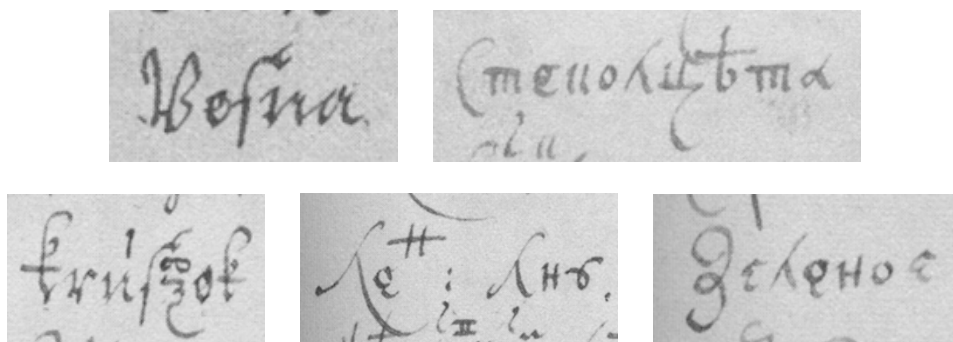 Веſna Степолцѣта
krúſzok Леⷩ : лнъ. Зеленое